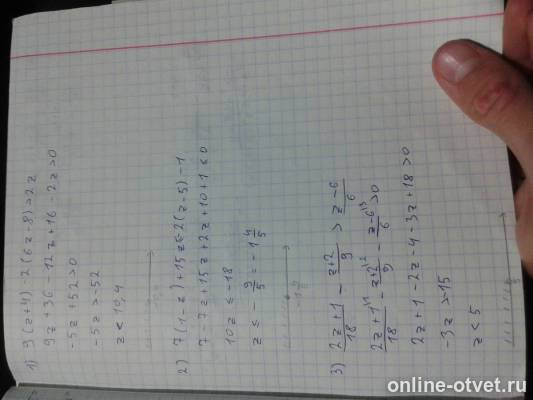 1) 9(z+4)-2(6z-8)>2z
9z+36-12z+16-2z>0
-5z+52>0
-5z>-52
z<10,4
2) 7(1-z)+15z≤-2(z-5)-1
7-7z+15z+2z+10+1≤0
10z≤-18
z≤-9/5=-1 4/5
3) (2z+1)/18 - (z+2)/9 > (z-6)/6
(2z+1)/18 - (z+2)/9 - (z-6)/6 >0
2z+1-2z-4-3z+18>0
-3z>-15
z<5
online-otvet.ru